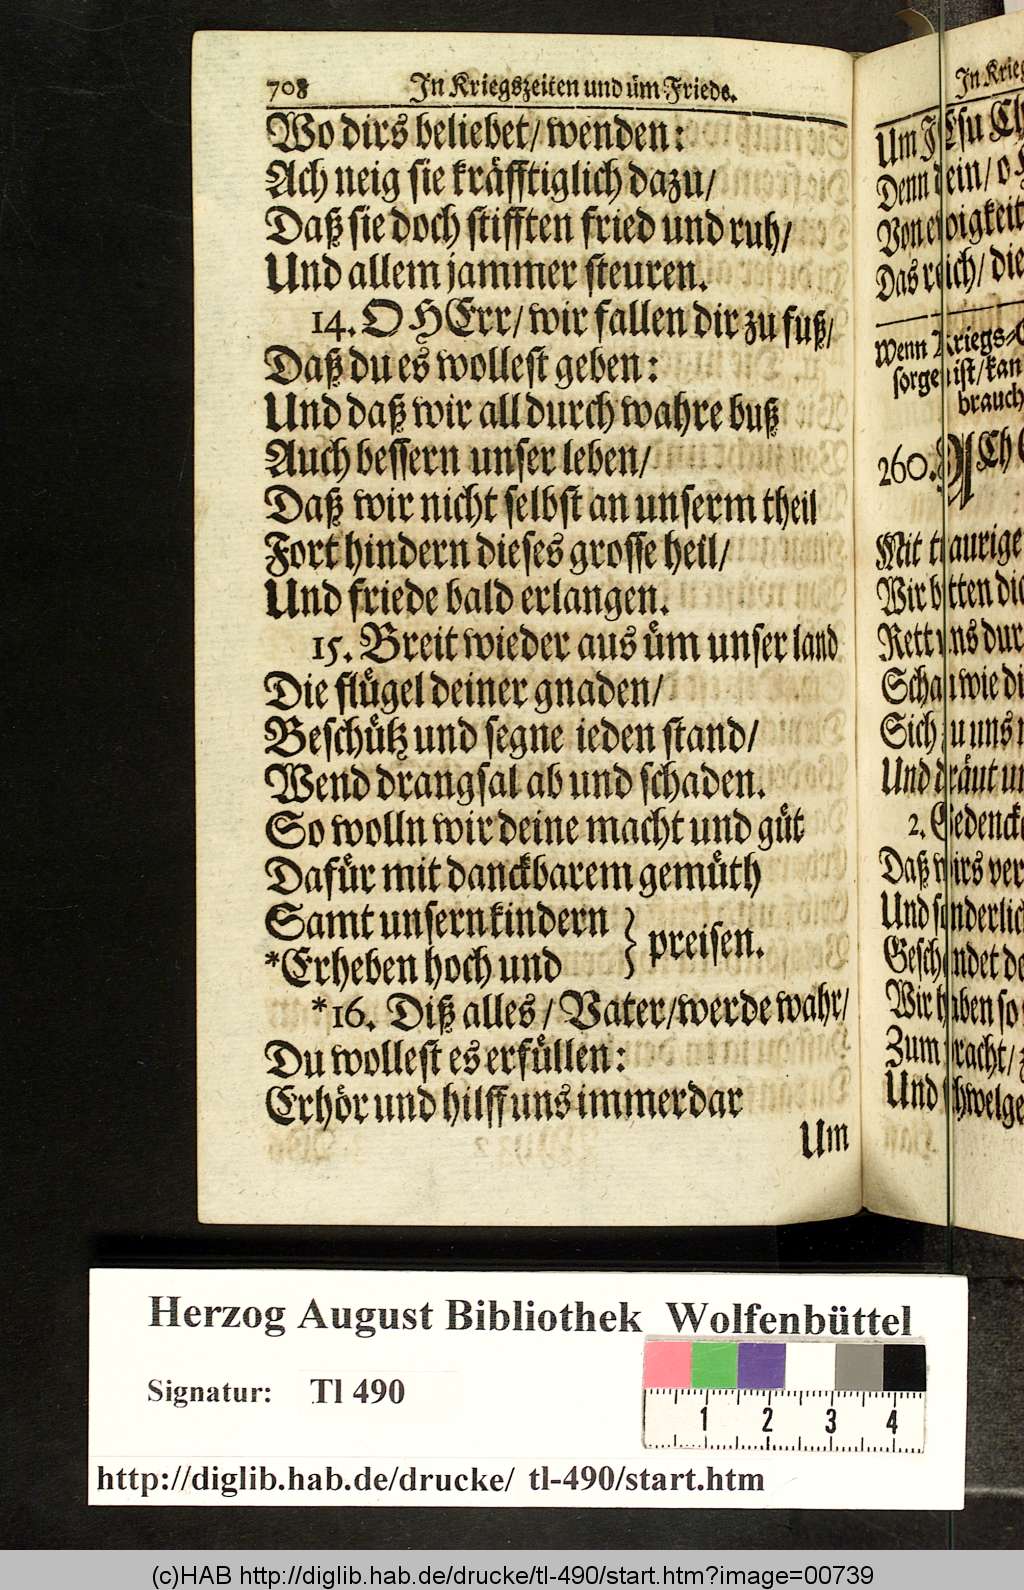 708 In Kriegszeiten und üm Friede.
Wo dirs beliebet/ wenden:
Ach neig sie kräfftiglich dazu/
Daß sie doch stifften fried und ruh/
Und allem jammer steuren.
14. O HErr/ wir fallen dir zu fuß/
Daß du es wollest geben:
Und daß wir all durch wahre buß
Auch bessern unser leben/
Daß wir nicht selbst an unserm theil
Fort hindern dieses grosse heil/
Und friede bald erlangen.
15. Breit wieder aus üm unser land
Die flügel deiner gnaden/
Beschütz und segne ieden stand/
Wend drangsal ab und schaden.
So wolln wir deine macht und güt
Dafür mit danckbarem gemüth
Samt unsern kindern } preisen.
*Erheben hoch und
*16. Diß alles/ Vater/ werde wahr/
Du wollest es erfüllen:
Erhör und hilff uns immerdar
Um
In Krieg
Um JEsu Ch
Denn dein/ o H
Von ewigkeit
Das reich/ die
Wenn Kriegs-
sorgen ist/ kan
brauch
260. ACh
Mit traurige
Wir bitten die
Rett uns dur
Schau wie di
Sich zu uns
Und dräut un
2. Gedencke
Daß wirs ver
Und sonderlich
Geschändet de
Wir haben so
Zum pracht/
Und schwelge
Herzog August Bibliothek Wolfenbüttel
Signatur: Tl 490
1 2 3 4
http://diglib.hab.de/drucke/ tl-490/start.htm
(c)HAB http://diglib.hab.de/drucke/tl-490/start.htm?image=00739